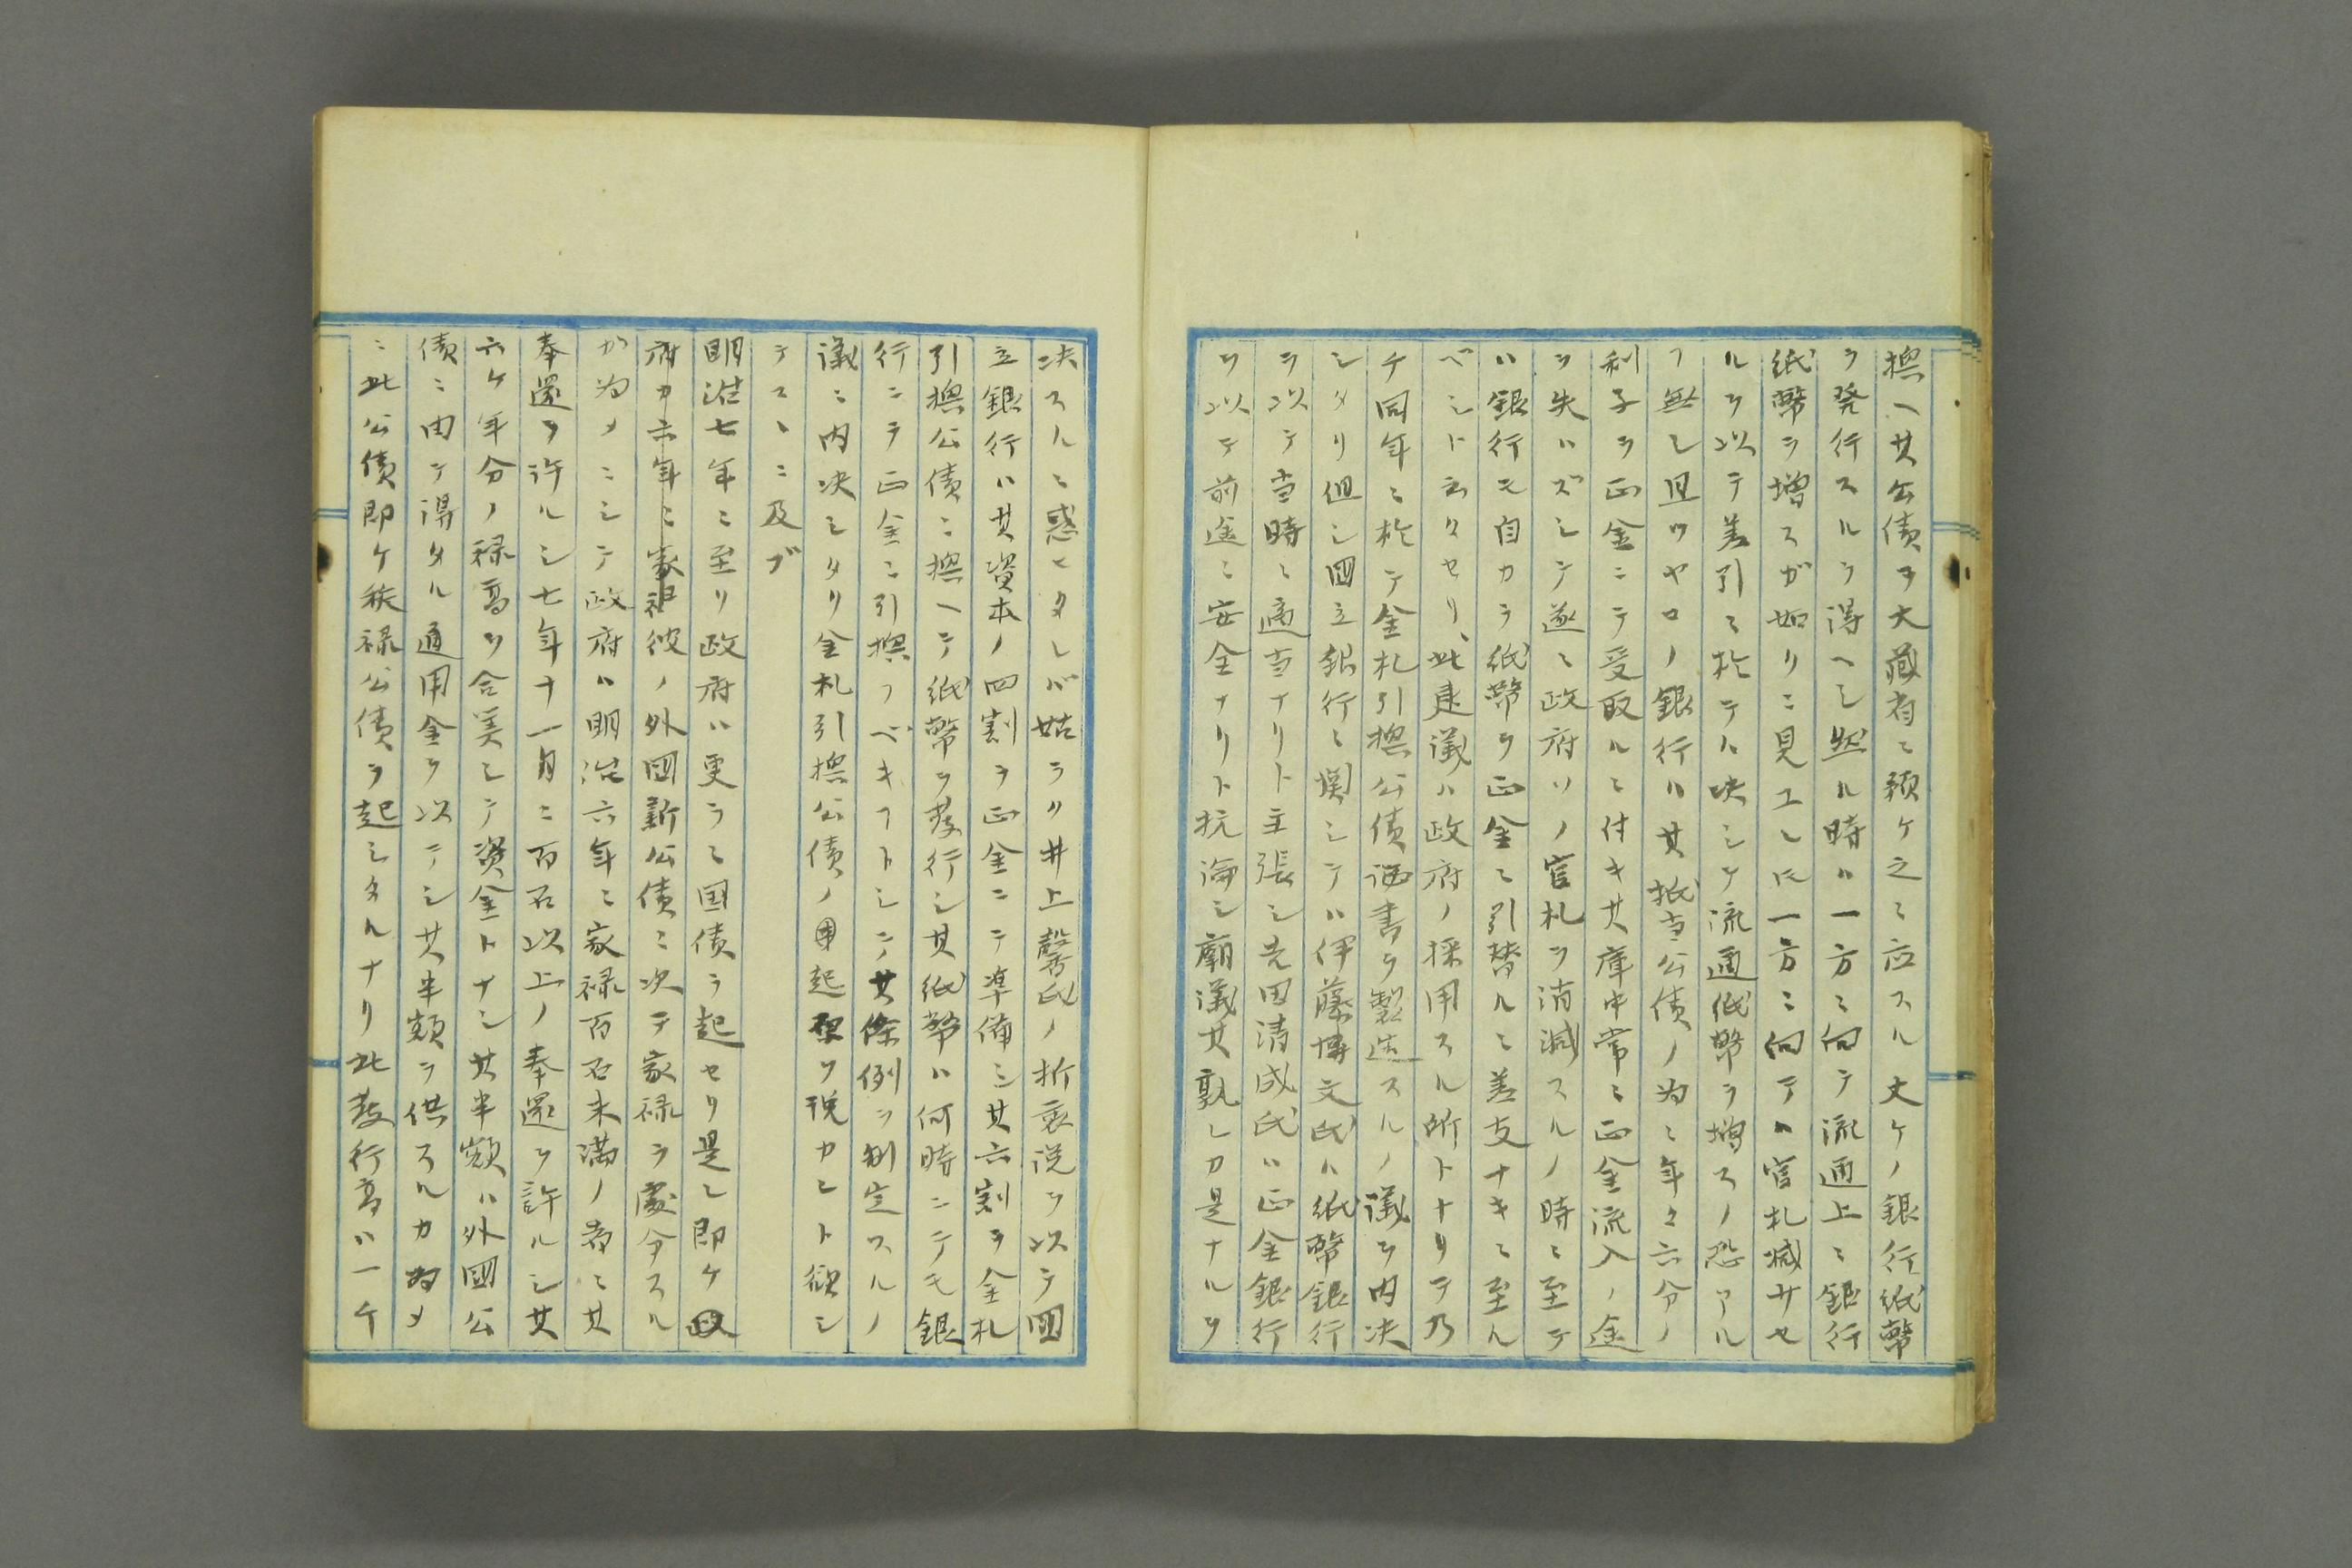 換ヘ其公債ヲ大藏省ニ預ケ之ニ応スル丈ケノ銀行紙幣
ヲ発行スルヲ得ヘシ然ル時ハ一方ニ向テ流通上ニ銀行
紙幣ヲ増スガ如リニ見エレ𪜈一方ニ向テハ官札減サセ
ルヲ以テ差引ニ於テハ決シテ流通紙幣ヲ増スノ恐アル
フ無シ且ツヤロノ銀行ハ其抵当公債ノ為ニ年々六分ノ
利子ヲ正金ニテ受取ルニ付キ其庫中常ニ正金流入ノ途
ヲ失ハズシテ遂ニ政府ソノ官札ヲ消滅スルノ時ニ至テ
ハ銀行モ自カラ紙幣ヲ正金ニ引替ルニ差支ナキニ至ル
ベシト云クセリ、此建議ハ政府ノ採用スル所トナリテ乃
チ同年ニ於テ金札引換公債證書ヲ製造スルノ議ヲ内決
シタリ但シ國立銀行ニ関シテハ伊藤博文氏ハ紙幣銀行
ヲ以テ当時ニ適当ナリト主張シ吉田清成氏ハ正金銀行
ヲ以テ前途ニ安全ナリト抗論シ廟議其孰レカ是ナルヲ
决スルニ惑ヒタレバ姑ラク井上馨氏ノ折衷説ヲ以テ國
立銀行ハ其資本ノ四割ヲ正金ニテ準備シ其六割ヲ金札
引換公債ニ換ヘテ紙幣ヲ発行シ其紙幣ハ何時ニテモ銀
行ニテ正金ニ引換フベキフトシテ其條例ヲ制定スルノ
議ニ内决シタリ金札引換公債ノ起ヲ説カント欲シ
テスヽニ及ブ
明治七年ニ至リ政府ハ更ラニ国債ヲ起セリ是レ即ケ政
府カ六年ニ家禄彼ノ外國新公債ニ次テ家禄ヲ處分スル
カ為メニシテ政府ハ明治六年ニ家禄百石未満ノ者ニ其
奉還ヲ許ルシ七年十一月ニ百石以上ノ奉還ヲ許ルシ其
六ケ年分ノ禄高ヲ合美シテ資金トナシ其半額ハ外國公
債ニ由テ得タル通用金ヲ以テシ其半額ヲ供スルカ為メ
ニ此公債即ケ秩禄公債ヲ起シタルナリ此発行高ハ一ケ